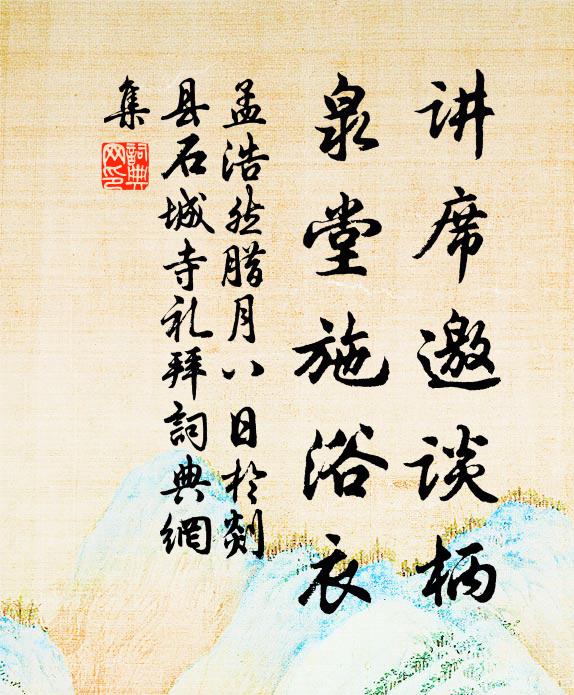 讲席邀谈柄
泉堂施浴衣
孟浩然腊月八日于剡
县石城寺礼拜詞典網
集
詞典网印